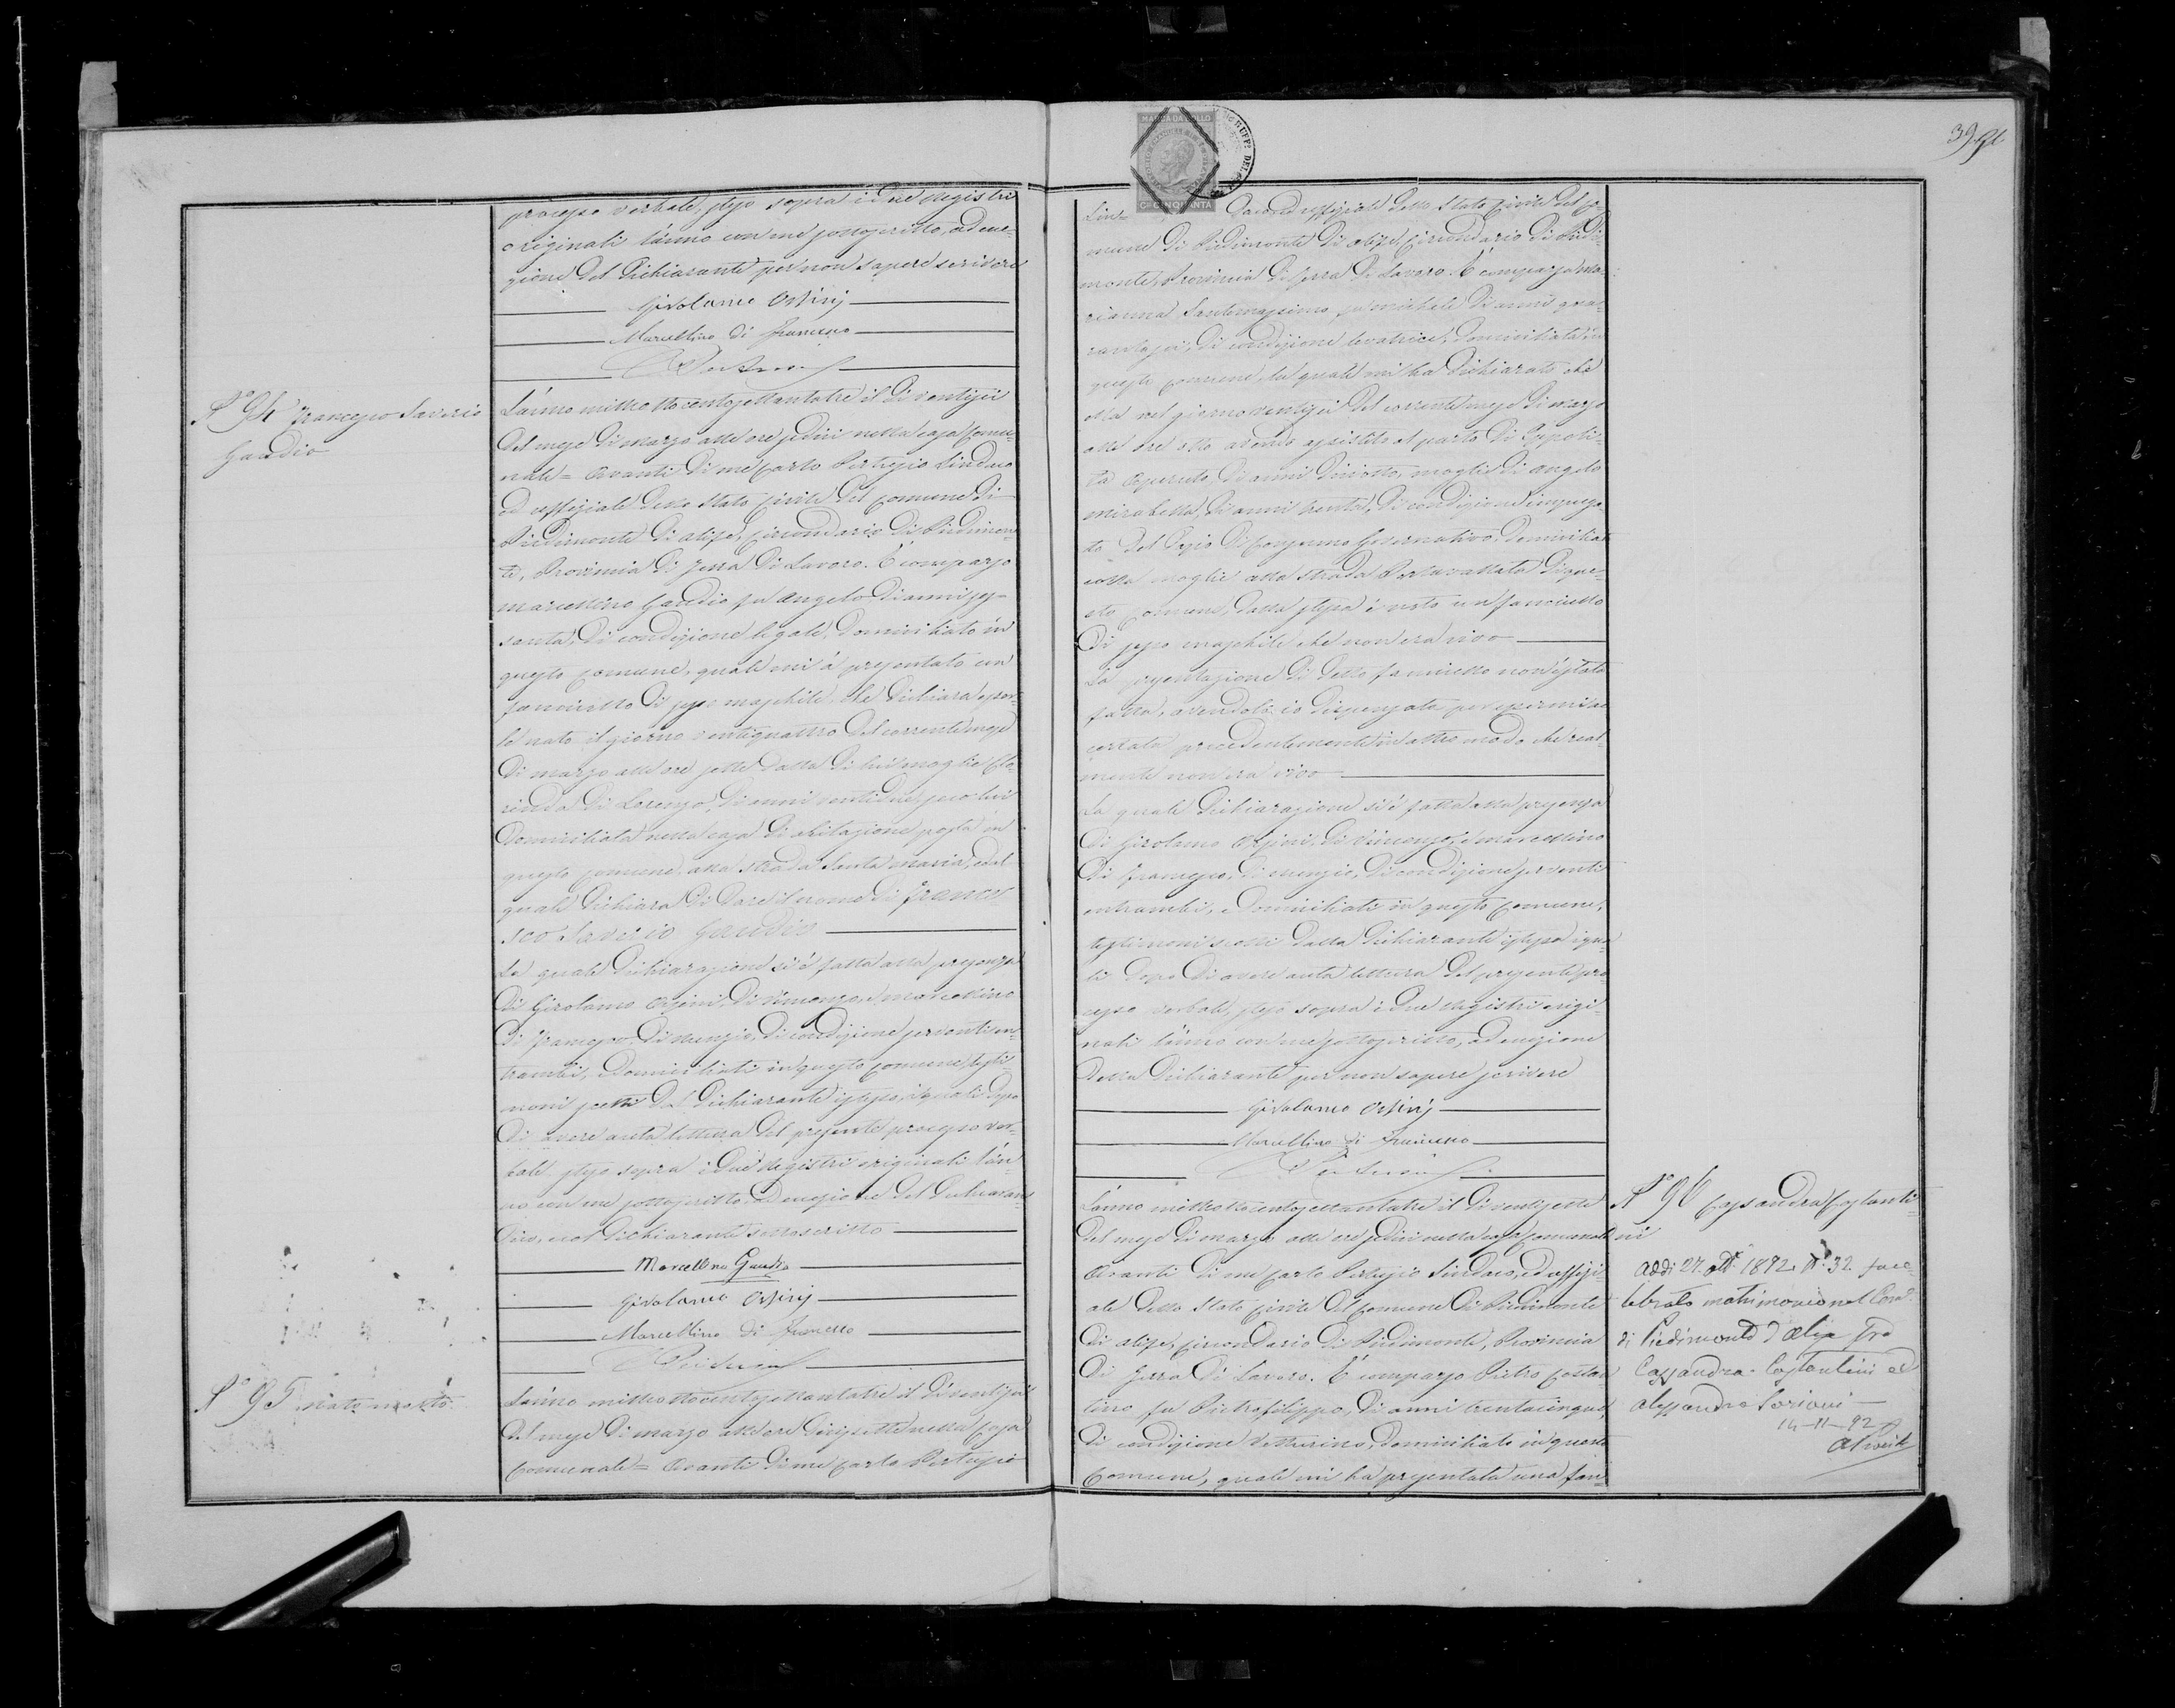 39
MARCA DA BOLLO
CMI CINQUANTA
processo verbale, steso sopra i due registri
originali l'ànno con me sottoscritto, ad ecce-
zione del dichiarante per non sapere scrivere
Girolamo Orsinj
Marcellino di Francesco
No 94 Francesco Saverio
Gaudio
L'anno milleottocentosettantatre il dì ventisei
del mese di marzo alle ore sedici nella casa comu-
nale= Avanti di me Carlo Pertugio Sindaco
ed uffiziale dello Stato Civile del comune di
Piedimonte di Alife, Circondario di Piedimon-
te, Provincia di Terra di Lavoro. È comparso
Marcellino Gaudio fu Angelo di anni ses-
santa, di condizione legale, domiciliato in
questo comune, quale mi à presentato un
fanciullo di sesso maschile, che dichiara esser-
lo nato il giorno ventiquattro del corrente mese
di marzo alle ore sette dalla di lui moglie Clo-
rinda di Lorenzo, di anni ventidue, seco lui
domiciliata nella casa di abitazione posta in
questo comune alla strada Santa Maria, ed al
quale dichiara di dare il nome di France-
sco Saverio Gaudio
La quale dichiarazione si è fatta alla presenza
di Girolamo Orsini, di Vincenzo, e Marcellino
di Francesco, di Nunzio, di condizione serventi en-
trambi, domiciliati in questo comune, testi-
moni scelti dal dichiarante istesso, i quali dopo
di avere avuta lettura del presente processo ver-
bale steso sopra i due registri originali l'àn-
no con me sottoscritto, ad eccezione del dichiaran-
dico, e col dichiarante sottoscritto
Marcellino Gaudio
Girolamo Orsinj
Marcellino di Francesco
No 95 nato morto
L'anno milleottocentosettantatre il dì ventisei
del mese di marzo alle ore diciassette nella Casa
Comunale= Avanti di me Carlo Pertugio
Sin= daco ed uffiziale dello Stato Civile del co-
mune di Piedimonte di Alife, Circondario di Piedi-
monte, Provincia di Terra di Lavoro. È comparsa Ma-
rianna Santomassimo fu Michele di anni qua-
rantasei, di condizione levatrice, domiciliata in
questo comune, la quale mi ha dichiarato che
ella nel giorno ventisei del corrente mese di marzo
alle ore otto avendo assistito al parto di Ippoli-
ta di anni diciotto, moglie di Angelo
Mirabella, di anni trenta, di condizione impiega-
to del Dazio di Consumo Governativo, domiciliato
colla moglie alla strada Portavallata di que-
sto comune, dalla stessa è nato un fanciullo
di sesso maschile che non era vivo
La presentazione di detto fanciullo non è stata
fatta, avendola io dispensata per essermi ac
certata precedentemente in altro modo che real-
mente non era vivo
La quale dichiarazione si è fatta alla presenza
di Girolamo Orsini, di Vincenzo, e Marcellino
di Francesco, di Nunzio, di condizione serventi
entrambi, e domiciliati in questo comune,
testimoni scelti dalla dichiarante istessa i qua-
li dopo di avere avuta lettura del presente pro-
cesso verbale, steso sopra i due registri origi-
nali l'ànno con me sottoscritto, ad eccezione
della dichiarante per non sapere scrivere
Girolamo Orsinj
Marcellino di Francesco
L'anno milleottocentosettantatre il dì ventisette
del mese di marzo alle ore sedici nella casa comunale
Avanti di me Carlo Pertugio Sindaco, ed uffizi-
ale dello Stato Civile del comune di Piedimonte
di Alife, circondario di Piedimonte, Provincia
di Terra di Lavoro. È comparso Pietro Costan-
tino, fu Pietrofilippo, di anni trentacinque,
di condizione vetturino, domiciliato in questo
Comune, quale mi ha presentata una fan-
No 96 Cassandra Costanti-
ni
Addì 27 1892 No 32 fu ce-
lebrato matrimonio nel Com.
di Piedimonte d'Alife fra
Cassandra Costantini ed
Alessandro Soriani
14-11-92